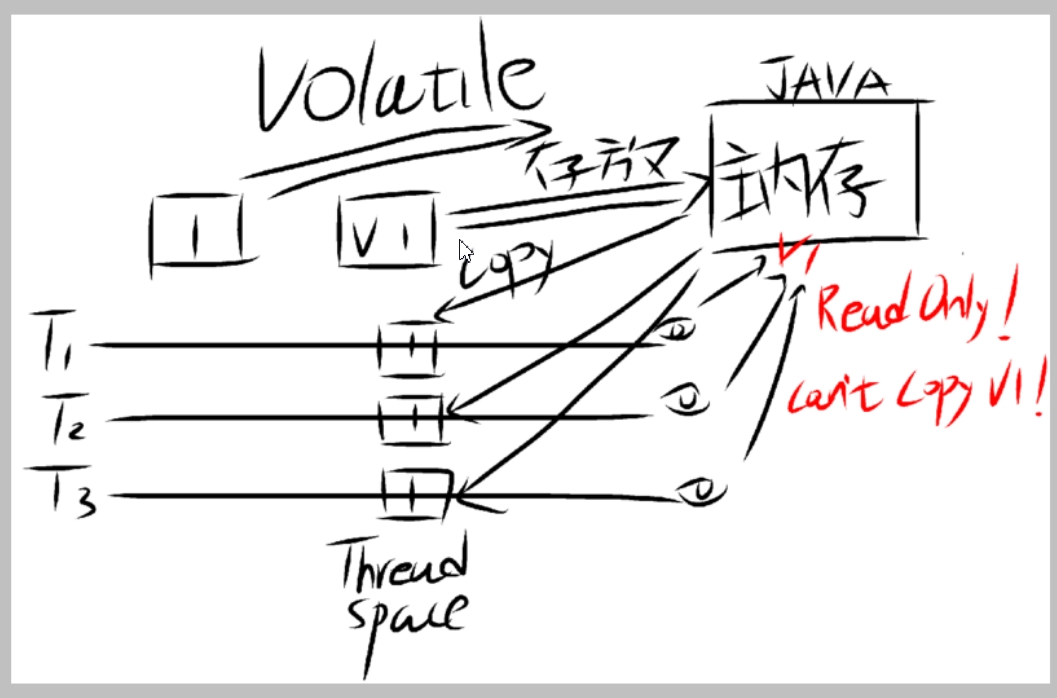 Volatile
JAVA
存放
主内存
1
V1
copy
V1
Read Only!
can't copy V1!
T1
1
T2
1
T3
1
Thread
space